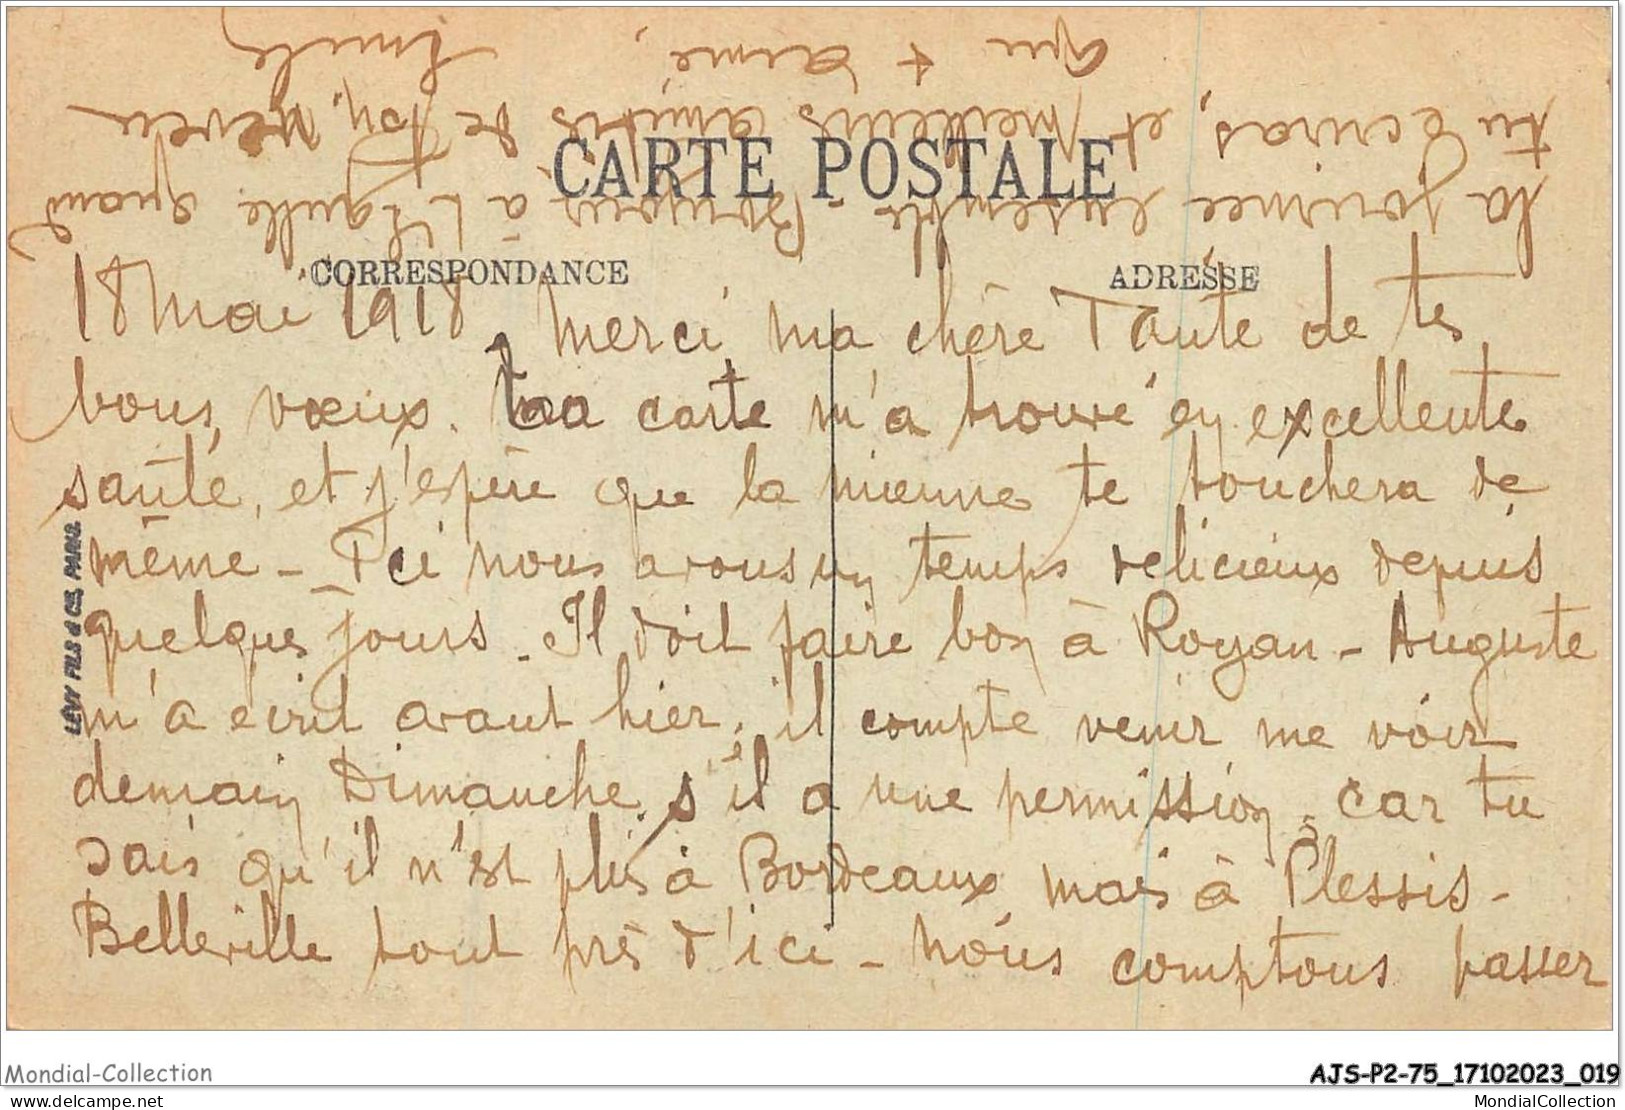 CARTE POSTALE
CORRESPONDANCE
ADRESSE
18 Mai 1918 Merci ma chère Tante de tes
bons vœux. Ta carte m'a trouvé en excellente
santé, et j'espère que la mienne te touchera de
même - Ici nous avons un temps délicieux depuis
quelques jours. Il doit faire bon à Royan - Auguste
m'a écrit avant hier, il compte venir me voir
demain Dimanche, s'il a une permission, car tu
sais qu'il n'est plus à Bordeaux mais à Plessis-
Belleville tout près d'ici - Nous comptons passer
la journée ensemble. Bonjour à l'Aguille quand
tu écriras, et meilleurs amitiés de ton neveu
qui t'aime,
Emile
LÉVY FILS & CIE, PARIS.
Mondial-Collection
AJS-P2-75_17102023_019
delcampe.net
MondialCollection